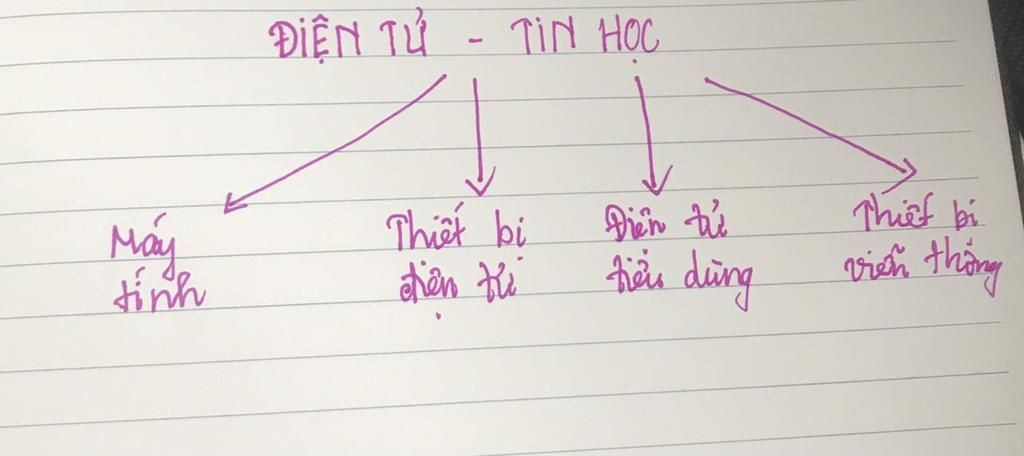 ĐIỆN TỬ - TIN HỌC
Máy
tính
Thiết bị
điện tử
Điện tử
tiêu dùng
Thiết bị
viễn thông